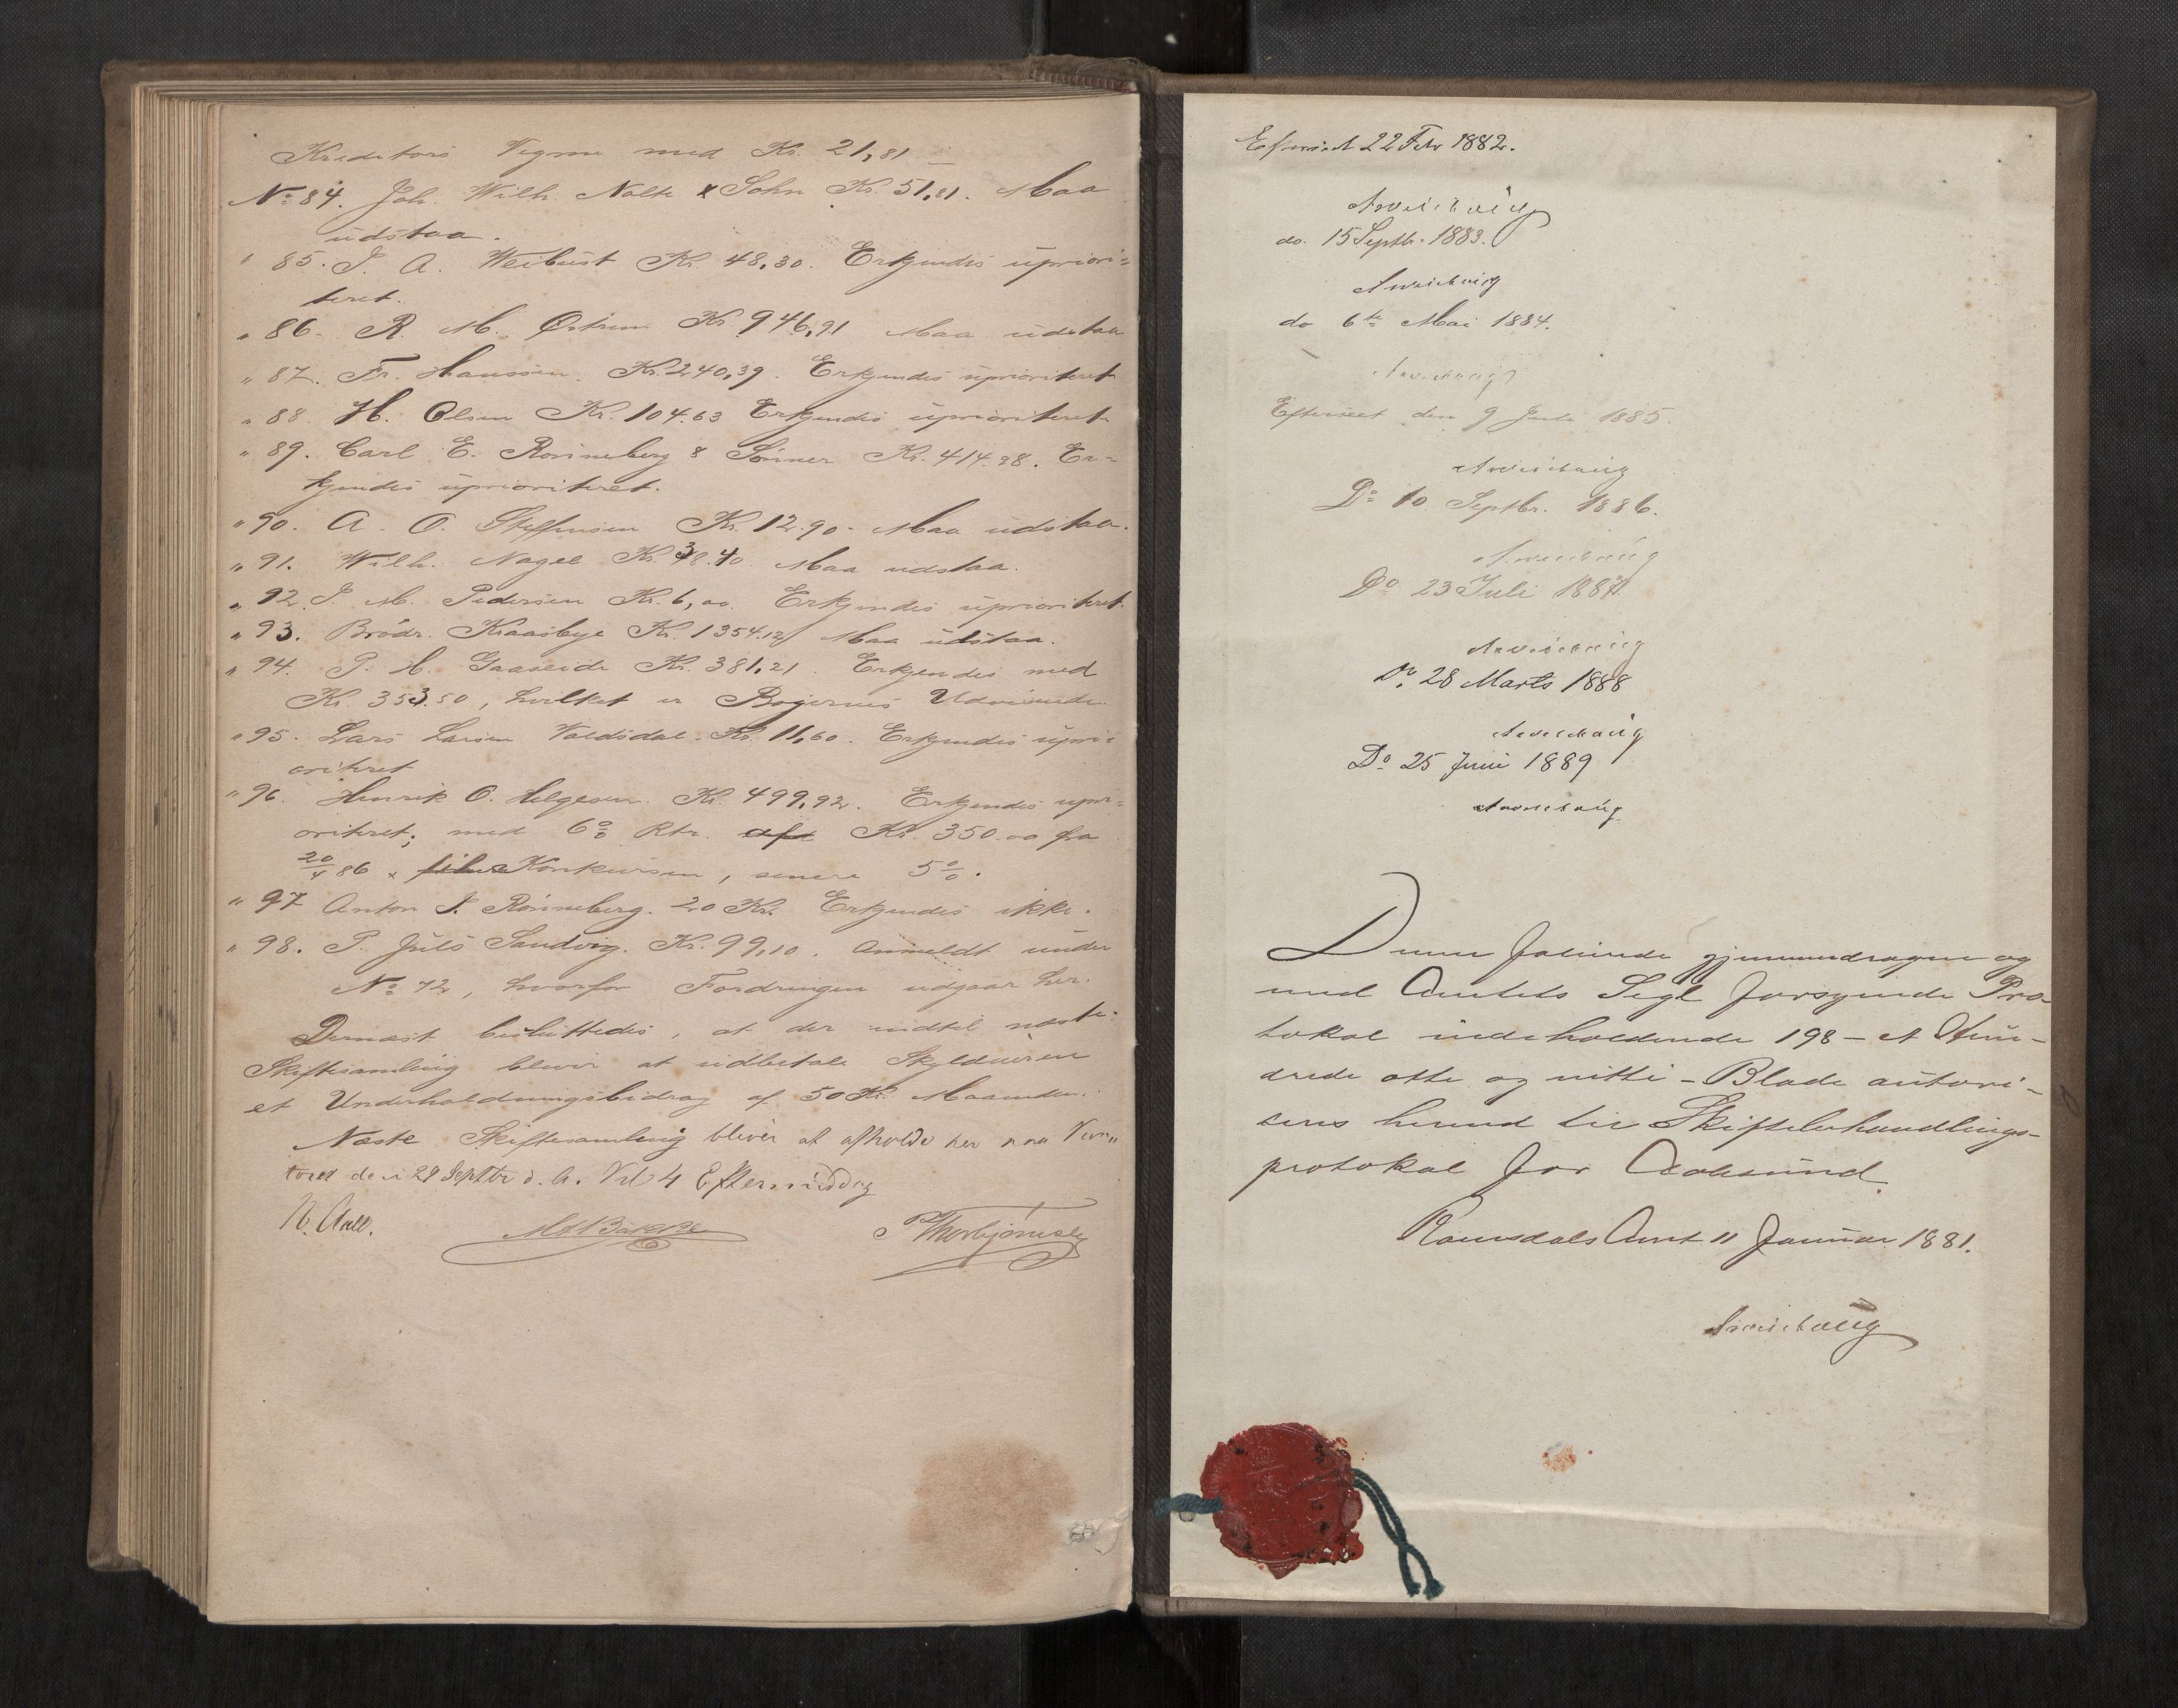 Kreditors Vegne med Kr. 21,81
No 84. Joh. Wilh. Nolte & Sohn Kr. 51,81. Maa
udstaa.
" 85. J. A. Weibust Kr. 48,30. Erkjendes upriori=
teret.
" 86. R. M. Kr 946,91 Maa udstaa
" 87. Fr. Hanssen. Kr. 240,39. Erkjendes uprioriteret
" 88 H. Olsen Kr. 104.63 Erkjendes uprioriteret
" 89. Carl E. Rønneberg & Sønner Kr. 414.98. Er=
kjendes uprioriteret.
" 90. A. O. Steffensen Kr. 12.90. Maa udstaa.
" 91. Wilh. Nagel Kr. 38.40 Maa udstaa.
" 92. J. M. Pedersen Kr. 6,00. Erkjendes uprioriteret.
" 93. Brødr. Kraasbye Kr. 1354.12 Maa udstaa.
" 94. P. M. Gaaseide Kr. 381,21 Erkjendes med
Kr. 353.50, hvilket er Bøgernes Udvisende.
" 95. Lars Larsen Valdsdal. Kr. 11,60. Erkjendes upri=
oriteret
" 96. Henrik O. Helgesen Kr. 499,92. Erkjendes upri=
oriteret; med 6% Rtr. af Kr. 350.00 fra
20/4 86 Konkursen, senere 5%.
" 97 Anton J. Rønneberg. 20 Kr. Erkjendes ikke.
" 98. P. Juls Sandvig. Kr. 99,10. Anmeldt under
No 72, hvorfor Fordringen udgaar her.
Dernæst besluttedes, at der indtil næste
Skiftesamling bliver at udbetale Skyldneren
et Underholdningsbidrag af 50 Kr. Maaneden.
Næste Skiftesamling bliver at afholde her paa Kon„
toret den 29 Septbr d. A. Kl 4 Eftermiddag
N. Aall. Bakke Thorbjørnsen
Efterseet 22 Febr 1882.
Arveschoug
do. 15 Septbr. 1883.
Arveschoug
do 6te Mai 1884.
Arveschoug
Efterseet den 9 Juli 1885.
Arveschoug
Do 10 Septbr. 1886.
Arveschoug
Do 23 Juli 1887.
Arveschoug
Do 28 Marts 1888
Arveschoug
Do 25 Juni 1889
Arveschoug
Denne følgende gjennemdragne og
med Amtets Segl forsynede Pro-
tokol indeholdende 198 - et Hun-
drede otte og nitti - Blade autori-
seres herved til Skiftebehandlings-
protokol for Aalesund.
Romsdals Amt 11 Januar 1881.
Arveschoug